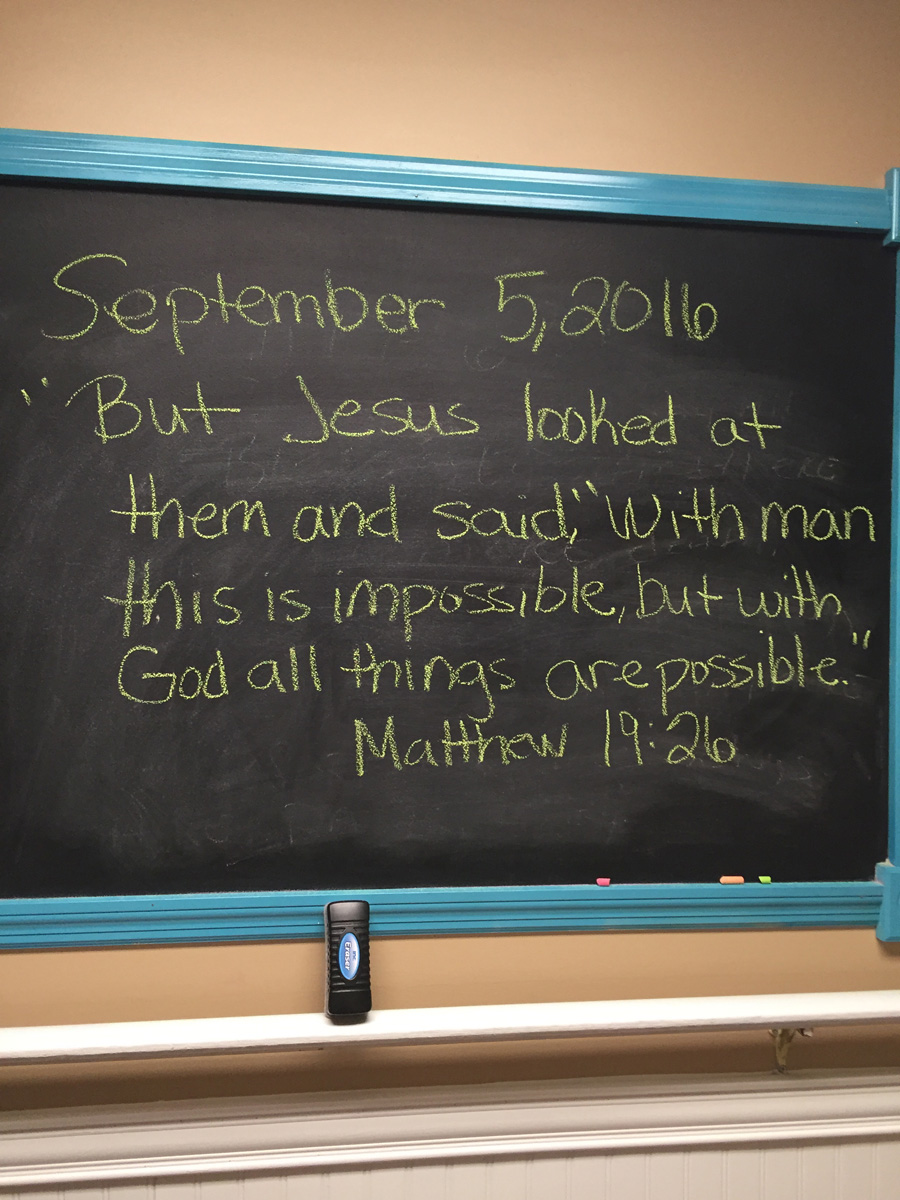 September 5, 2016
"But Jesus looked at
them and said, "With man
this is impossible, but with
God all things are possible."
Matthew 19:26
Eraser